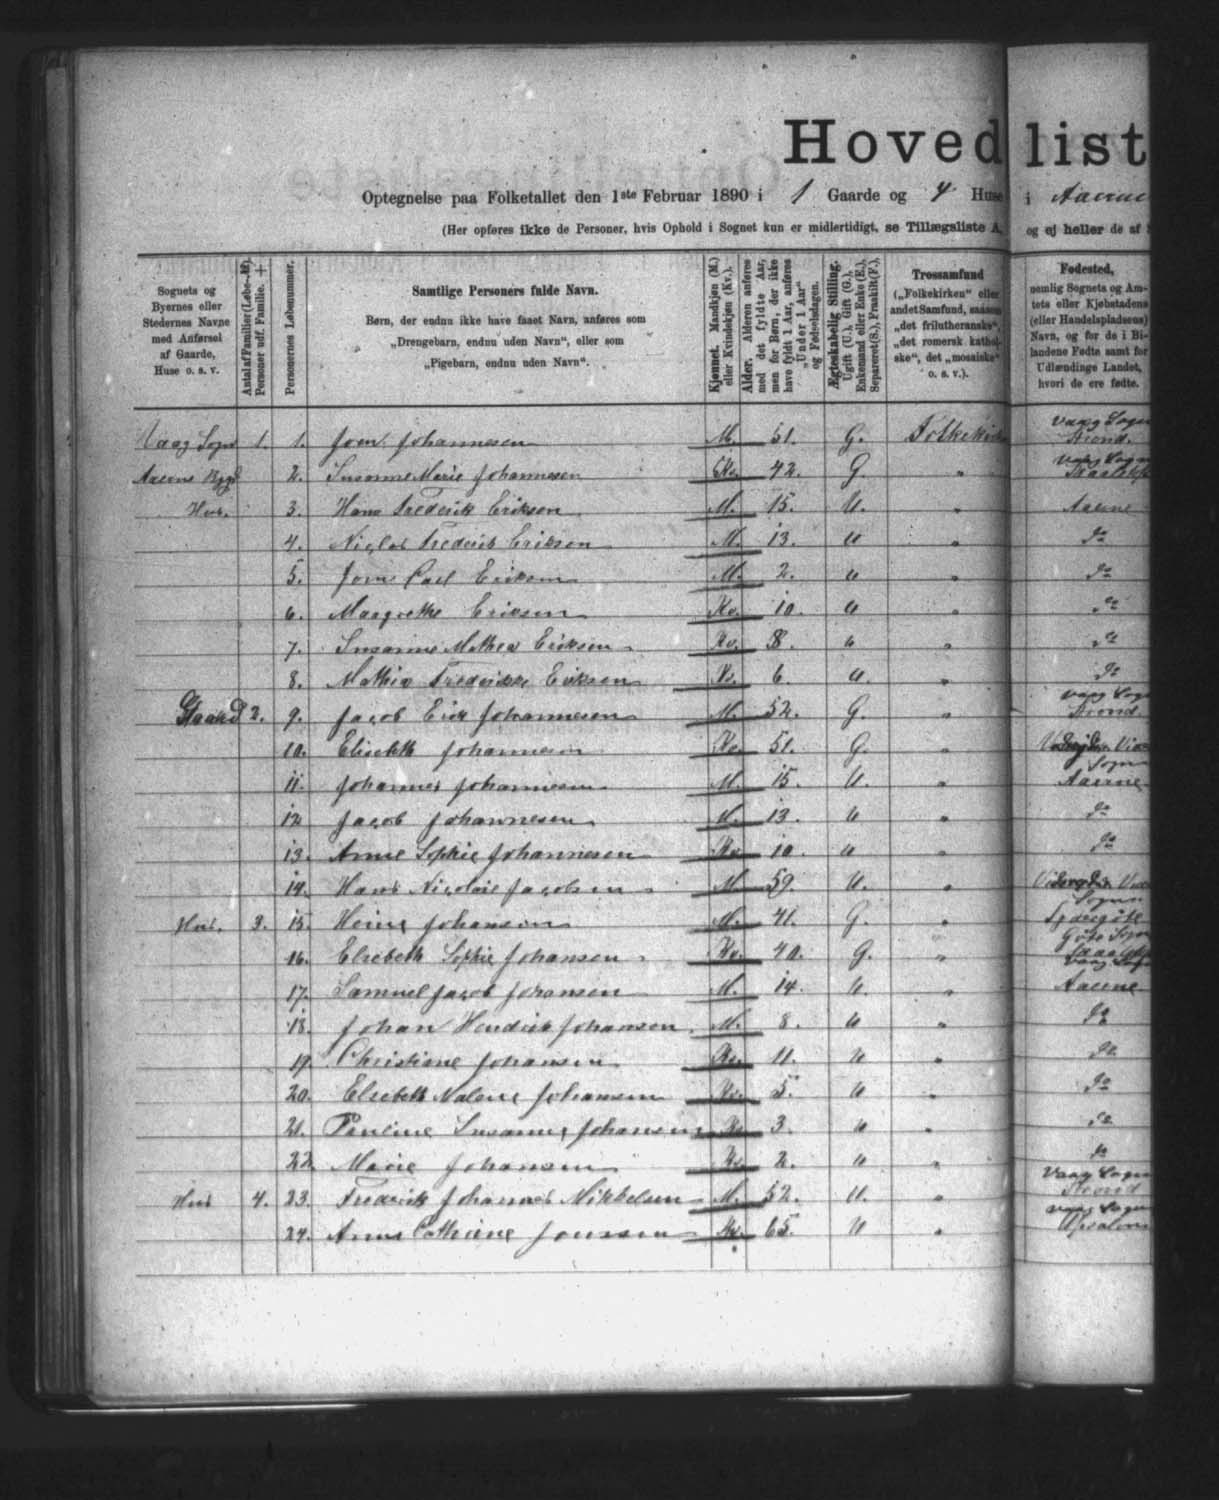 Hovedlist
Optegnelse paa Folketallet den 1ste Februar 1890 i 1 Gaarde og 4 Huse i
(Her opføres ikke de Personer, hvis Ophold i Sognet kun er midlertidigt, se Tillægsliste A, og ej heller de af
Sognets og Byernes eller Stedernes Navne med Anførsel af Gaarde, Huse o. s. v.
Antal af Familier (Løbe-№). Personer udf. Familie. +
Personernes Løbenummer.
Samtlige Personers fulde Navn.
Børn, der endnu ikke have faaet Navn, anføres som „Drengebarn, endnu uden Navn“, eller som „Pigebarn, endnu uden Navn“.
Kjønnet. Mandkjøn (M.) eller Kvindekjøn (Kv.).
Alder. Alderen anføres med det fyldte Aar, men for Børn, der ikke have fyldt 1 Aar, anføres „Under 1 Aar“ og Fødselsdagen.
Ægteskabelig Stilling. Ugift (U.), Gift (G.), Enkemand eller Enke (E.), Separeret (S.), Fraskilt (F.).
Trossamfund („Folkekirken“ eller andet Samfund, saasom „det frilutheranske“, „det romersk kathol- ske“, det „mosaiske“ o. s. v.).
Fødested, nemlig Sognets og Am- tets eller Kjøbstadens (eller Handelspladsens) Navn, og for de i Bi- landene Fødte samt for Udlændinge Landet, hvori de ere fødte.
Vaag Sogn 1. 1. Joen Johannesen M. 51. G. Vaag Sogn
2. Susanne Marie Johannesen Kv. 42. G. " Vaag Sogn
Hus. 3. Hans Frederik Eriksen M. 15. U. "
4. Niclas Frederik Eriksen M. 13. U " do
5. Joen Carl Eriksen M. 2. U " do
6. Margrethe Eriksen Kv. 10. U " do
7. Susanne Mathea Eriksen Kv. 8. U " do
8. Mathea Frederikke Eriksen Kv. 6. U. " do
Gaard 2. 9. Jacob Erik Johannesen M. 52. G. " Vaag Sogn
10. Elisebeth Johannesen Kv. 51. G. " Sogn
11. Johannes Johannesen M. 15. U. "
12 Jacob Johannesen M. 13. U " do
13. Anne Sophie Johannesen Kv. 10. U " do
14. Hans Nicolaie Jacobsen M. 59. U. " Sogn
Hus. 3. 15. Heine Johansen M. 41. G. "
16. Elsebeth Sophie Johansen Kv. 40. G. " Vaag Sogn
17. Samuel Jacob Johansen M. 14. U. "
18. Johan Hendrik Johansen M. 8. U " do
19. Christiane Johansen Kv. 11. U " do
20. Elsebeth Malene Johansen Kv. 5. U " do
21. Pauline Susanne Johansen Kv. 3. U " do
22 Marie Johansen Kv. 2. U " do
Hus 4. 23. Frederik Johannes Mikkelsen M. 52. U. " Vaag Sogn
24. Anna Cathrine Joensen Kv. 65. U " Vaag Sogn